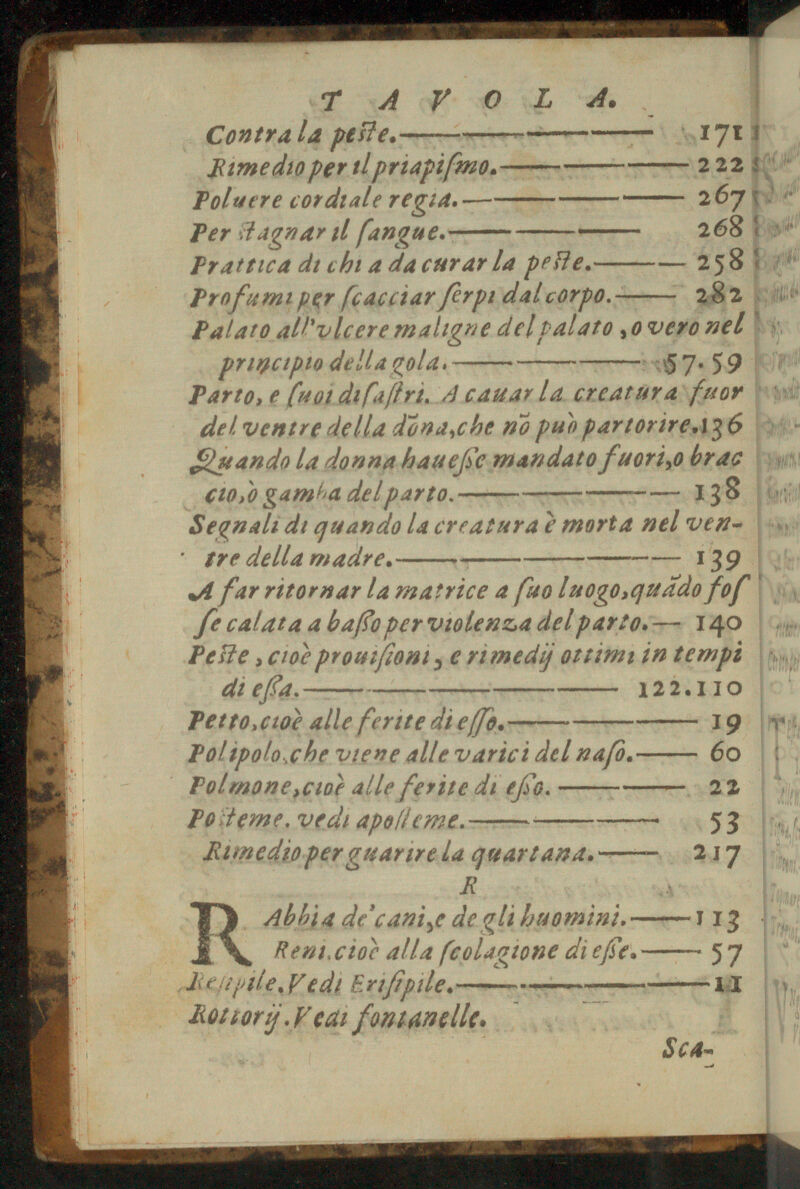 TAVOLA.
Contra la peste. 171
Rimedio per il priapismo. 222
Poluere cordiale regia. 267
Per stagnar il sangue. 268
Prattica di chi a da curar la peste. 258
Profumi per scacciar serpi dal corpo. 282
Palato all'vlcere maligne del palato, o vero nel
principio della gola. 57.59
Parto, e suoi disastri. A cauar la creatura fuor
del ventre della dōna, che nō può partorire. 136
Quando la donna hauesse mandato fuori, o brac
cio, ò gamba del parto. 138
Segnali di quando la creatura è morta nel ven-
tre della madre. 139
A far ritornar la matrice a suo luogo, quādo fos
se calata a basso per violenza del parto. 140
Peste, cioè prouisioni, e rimedij ottimi in tempi
di essa. 122.110
Petto, cioè alle ferite di esso. 19
Polipolo, che viene alle varici del naso. 60
Polmone, cioè alle ferite di esso. 22
Posteme. vedi aposteme. 53
Rimedio per guarire la quartana. 217
R
RAbbia de' cani, e de gli huomini. 113
Reni, cioè alla scolagione di esse. 57
Resipile, Vedi Erisipile. 11
Rottorij. Vedi fontanelle.
Sca-